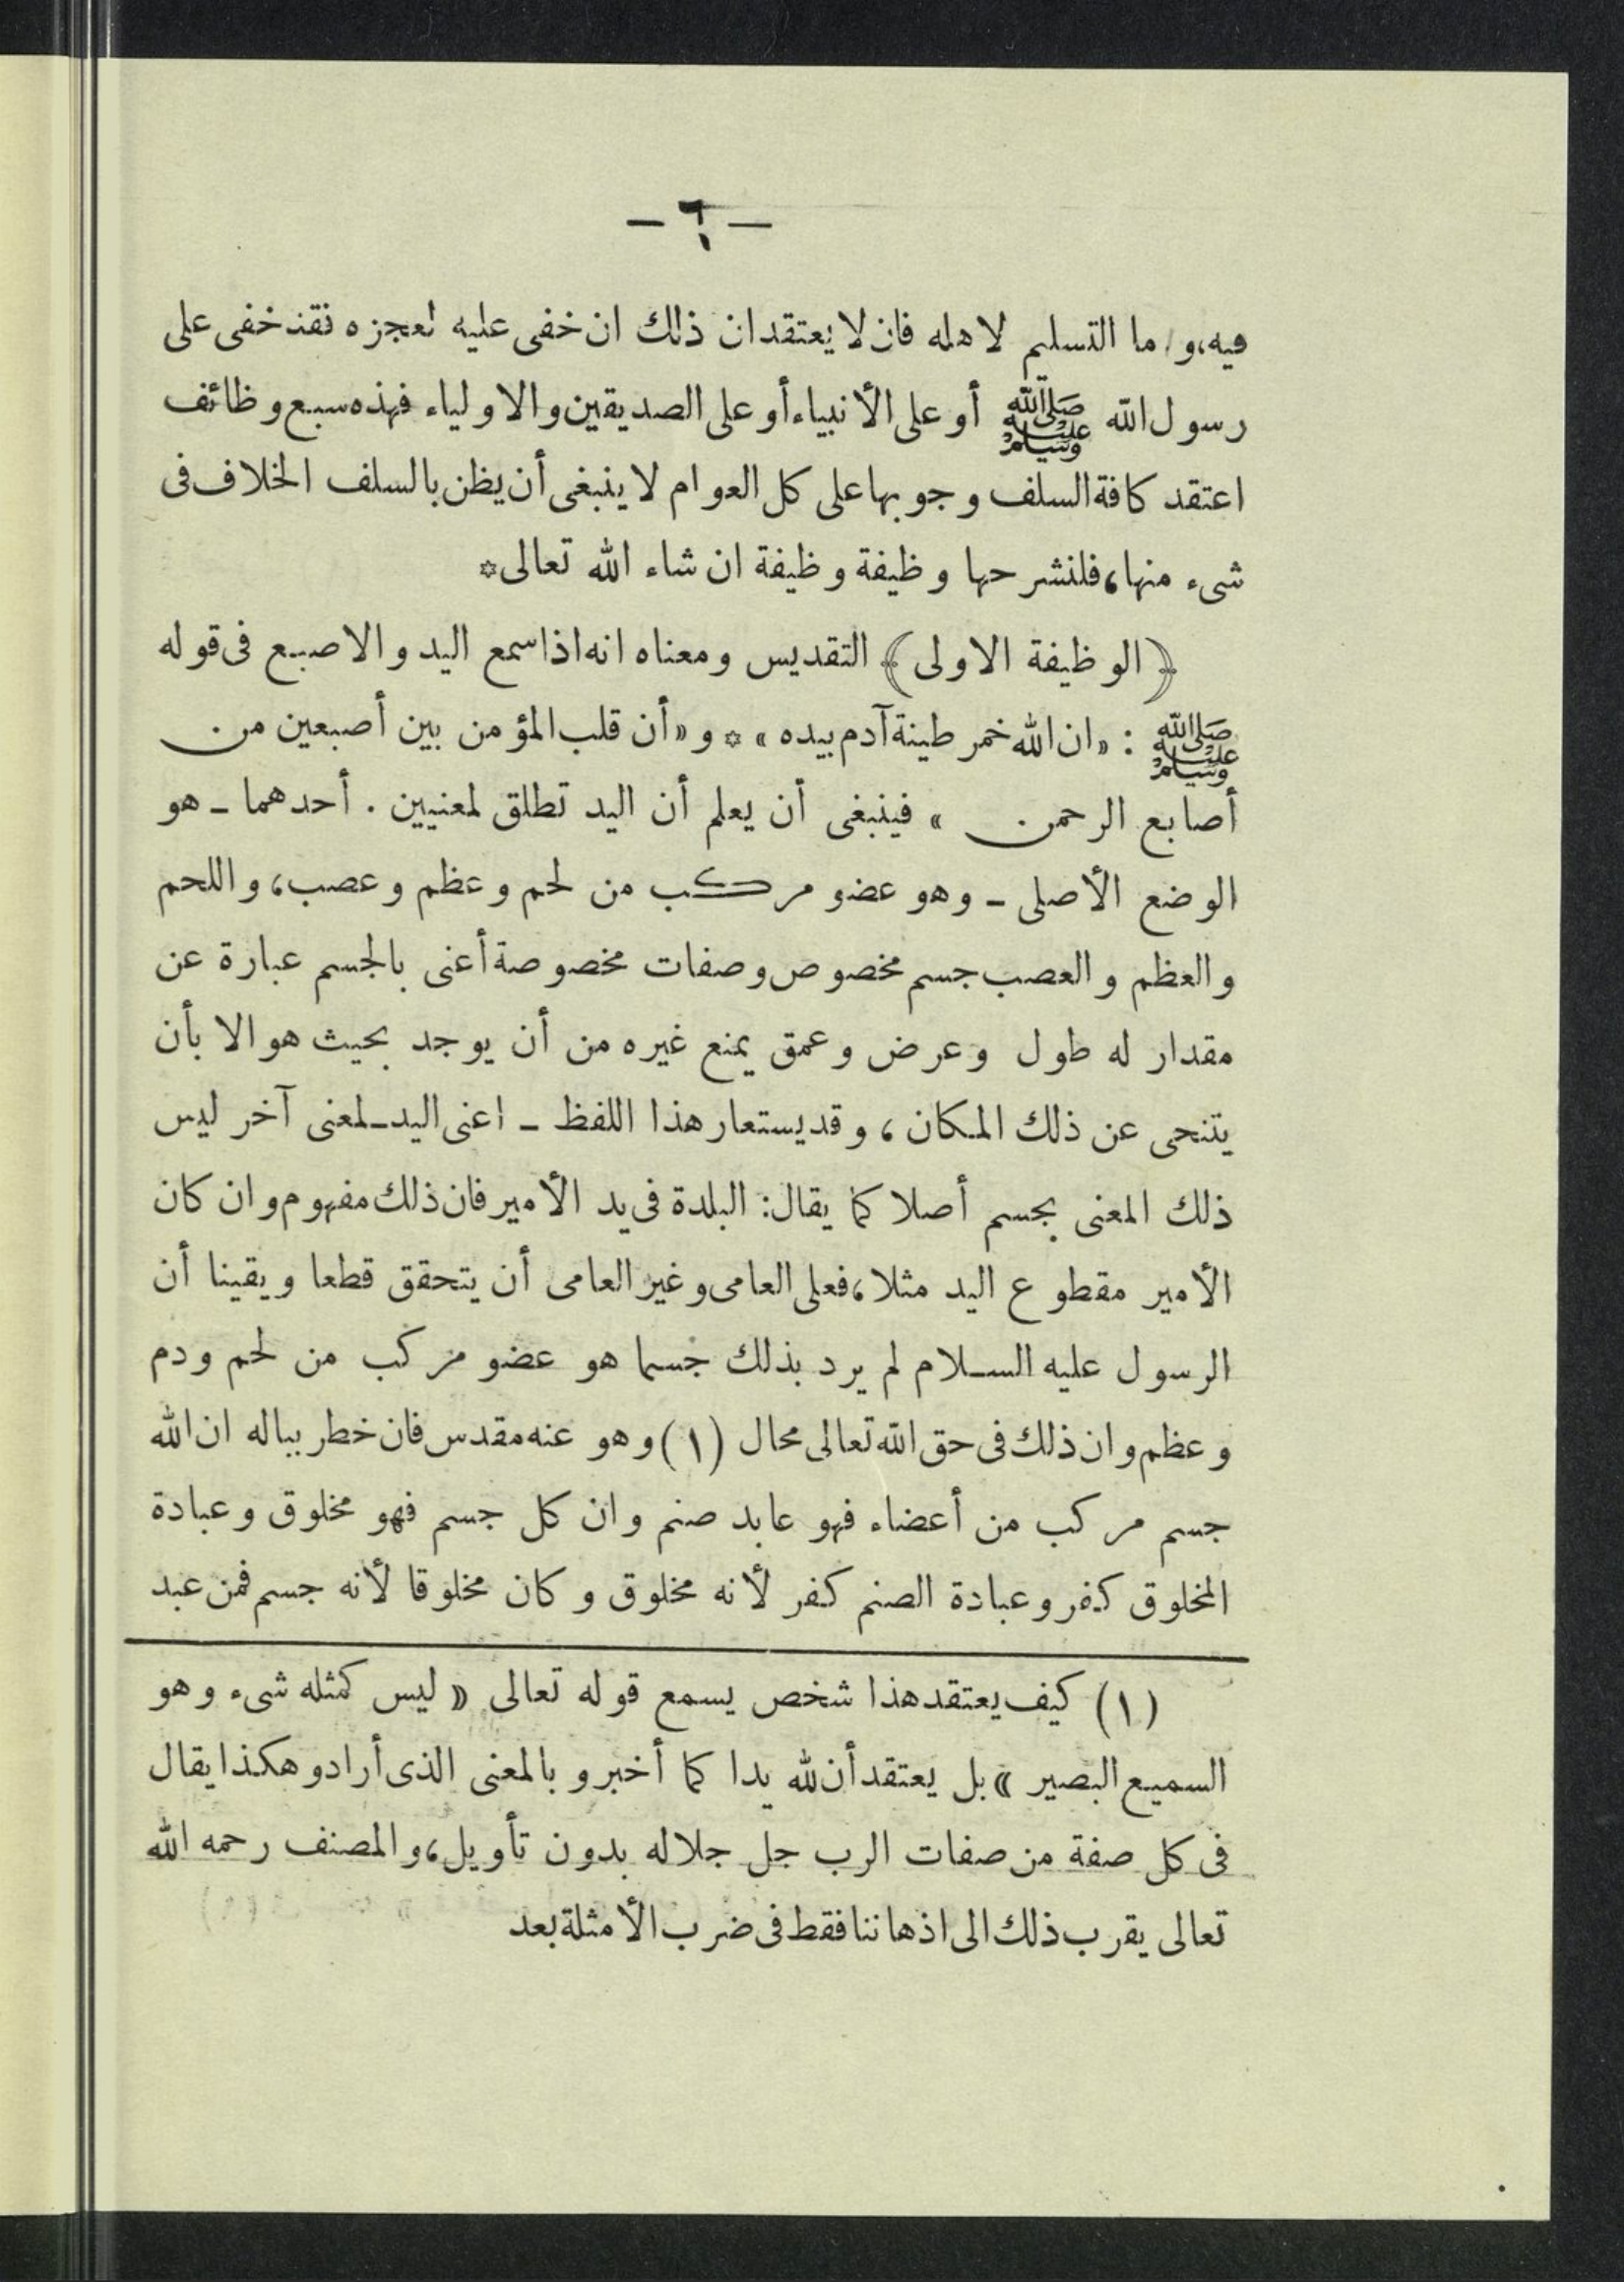 — ٦ —
فيه، وأما التسليم لاهله فان لا يعتقد ان ذلك ان خفى عليه لعجزه فقد خفى على
رسول الله ﷺ أو على الأنبياء أو على الصديقين والاولياء فهذه سبع وظائف
اعتقد كافة السلف وجوبها على كل العوام لا ينبغى أن يظن بالسلف الخلاف فى
شىء منها، فلنشرحها وظيفة وظيفة ان شاء الله تعالى*
﴿الوظيفة الاولى﴾ التقديس ومعناه انه اذا سمع اليد والاصبع فى قوله
ﷺ : «ان الله خمر طينة آدم بيده» * و«أن قلب المؤمن بين أصبعين من
أصابع الرحمن » فينبغى أن يعلم أن اليد تطلق لمعنيين . أحدهما ـ هو
الوضع الأصلى ـ وهو عضو مركب من لحم وعظم وعصب، واللحم
والعظم والعصب جسم مخصوص وصفات مخصوصة أعنى بالجسم عبارة عن
مقدار له طول وعرض وعمق يمنع غيره من أن يوجد بحيث هو الا بأن
يتنحى عن ذلك المكان ، وقد يستعار هذا اللفظ ـ اعنى اليد ـ لمعنى آخر ليس
ذلك المعنى بجسم أصلا كما يقال: البلدة فى يد الأمير فان ذلك مفهوم وان كان
الأمير مقطوع اليد مثلا، فعلى العامى وغير العامى أن يتحقق قطعا ويقينا أن
الرسول عليه السلام لم يرد بذلك جسما هو عضو مركب من لحم ودم
وعظم وان ذلك فى حق الله تعالى محال (١) وهو عنه مقدس فان خطر بباله ان الله
جسم مركب من أعضاء فهو عابد صنم وان كل جسم فهو مخلوق وعبادة
المخلوق كفر وعبادة الصنم كفر لأنه مخلوق وكان مخلوقا لأنه جسم فمن عبد
(١) كيف يعتقد هذا شخص يسمع قوله تعالى «ليس كمثله شىء وهو
السميع البصير» بل يعتقد أن لله يدا كما أخبر وبالمعنى الذى أراد وهكذا يقال
فى كل صفة من صفات الرب جل جلاله بدون تأويل، والمصنف رحمه الله
تعالى يقرب ذلك الى اذهاننا فقط فى ضرب الأمثلة بعد